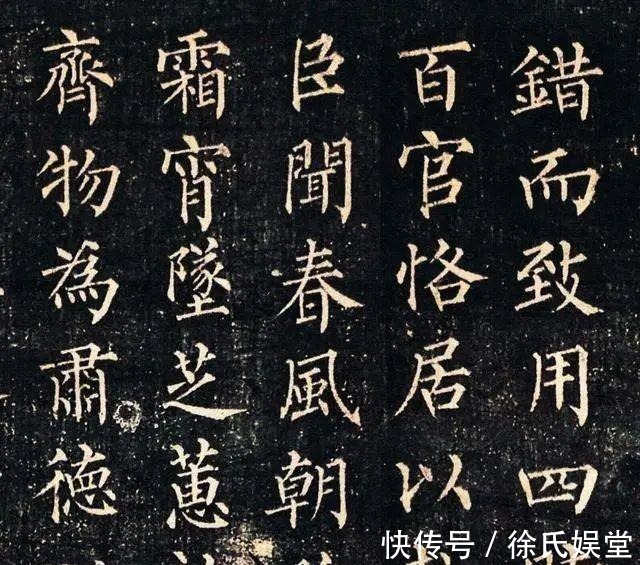 錯而致用四
百官恪居以
臣聞春風朝
霜宵墜芝蕙
齊物為肅德
快传号/徐氏娱堂